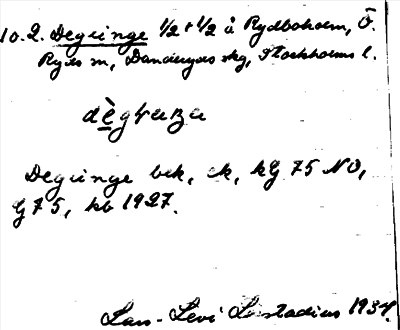 10.2. Degeinge ½ + ½ å Rydboholm, Ö.
Ryds sn, Danderyds skg, Stockholms l.
Degeinge bek, ek, kG 75 NO,
G 75, kb 1927.
Lars-Levi Læstadius 1937.